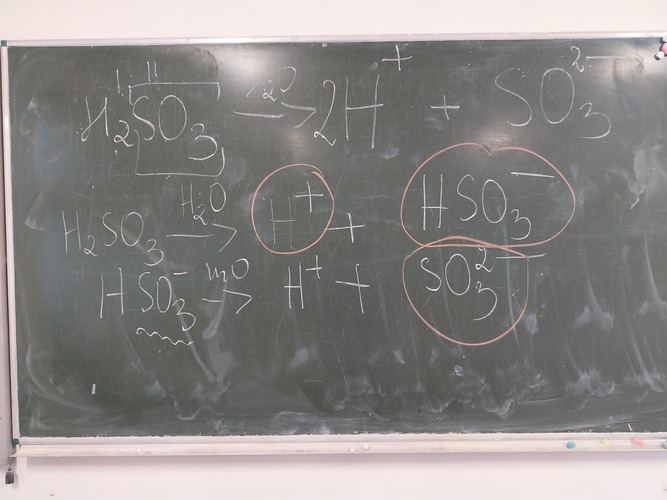 I II
H₂SO₃ —H₂O→ 2H⁺ + SO₃²⁻
H₂SO₃ —H₂O→ H⁺ + HSO₃⁻
HSO₃⁻ —H₂O→ H⁺ + SO₃²⁻